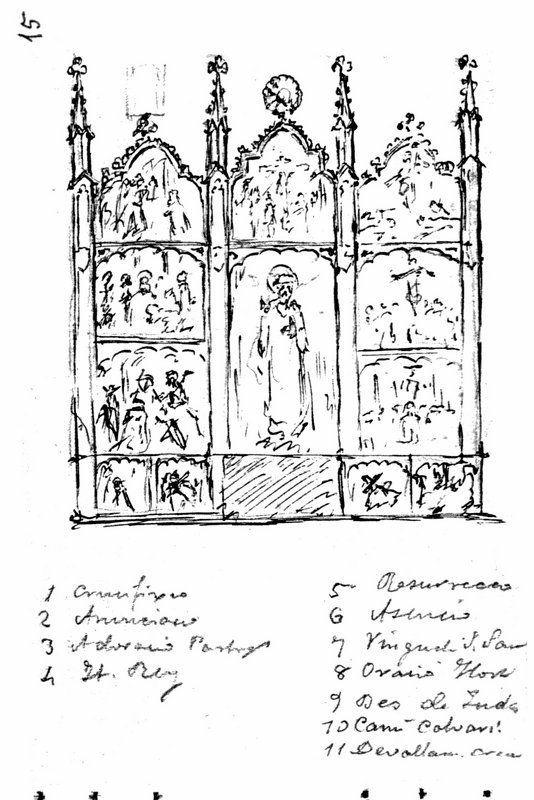 15
1 Crucifixio
2 Anunciacio
3 Adoracio Pastors
4 Id. Rey
5 Resurreccio
6 Asencio
7 Vinguda
8 Oracio Hort
9 Bes de Judas
10 Camí Calvari
11 Devallam. creu